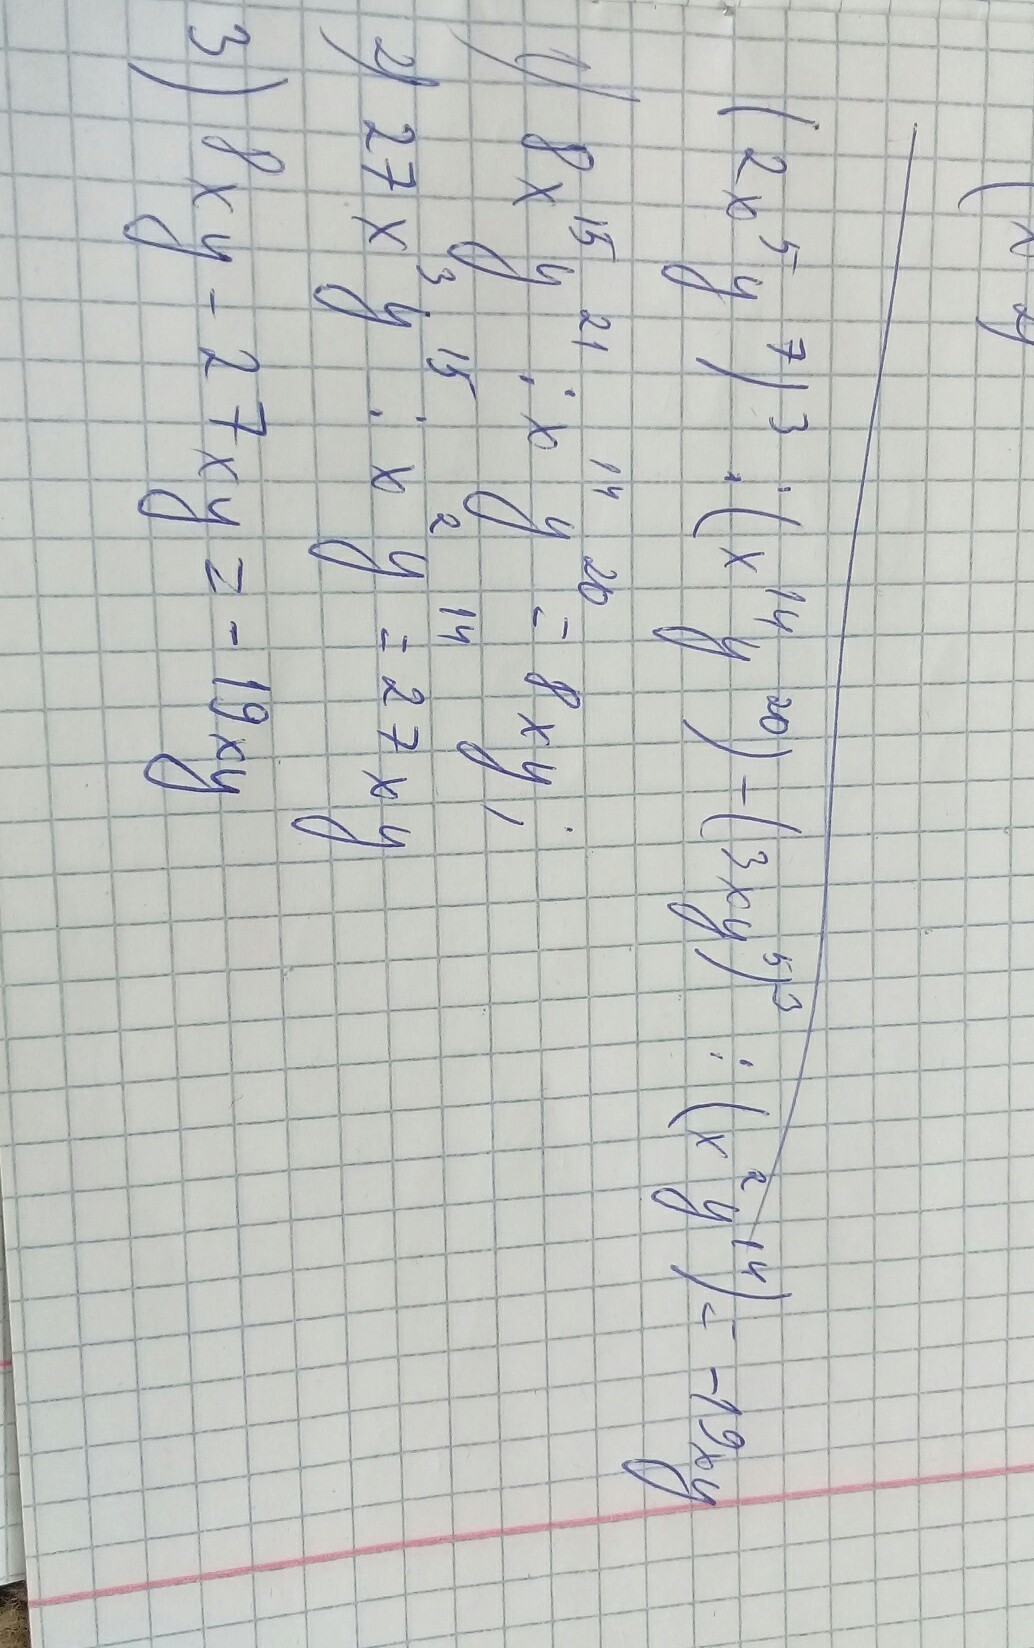 (2x⁵y⁷)³ : (x¹⁴y²⁰) - (3xy⁵)³ : (x²y¹⁴) = -19xy
1) 8x¹⁵y²¹ : x¹⁴y²⁰ = 8xy;
2) 27x³y¹⁵ : x²y¹⁴ = 27xy
3) 8xy - 27xy = -19xy